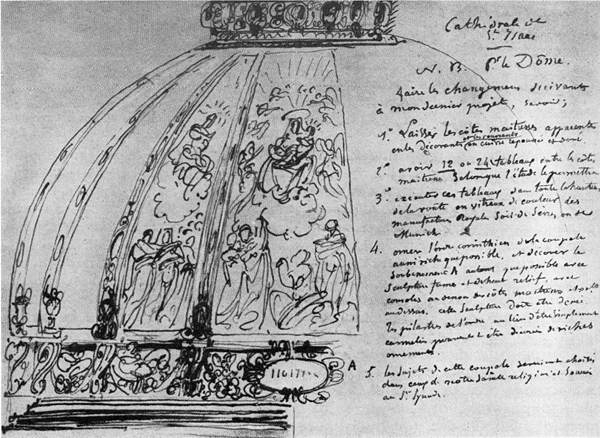 Cathédrale de
St Isaac
N. B. Pr le Dôme.
faire les changemens suivants
à mon dernier projet, savoir;
1° Laisser les côtes maitresses apparentes
en les décorants, en cuivre repoussé et doré.
2° avoir 12 ou 24 tableaux entre les côtes
maitresses selon que l'étude le permettra
3° executer ces tableaux dans toute la hauteur
de la voute en vitreaux de couleur des
manufactures Royales soit de Sèvres, ou de
Munich
4. orner l'ordre corinthien de la coupole
aussi riche que possible, et décorer le
soubassement A autant que possible avec
sculpture et relief avec
consoles au dessous des côtes maitresses
au dessus. cette sculpture doit être dorée
les pilastres de l'ordre au lieu d'être simplement
cannelés pourraient être décorés de riches
ornemens.
5. les sujets de cette coupole seraient choisis
dans ceux de notre sainte religion et soumis
au St Synode.
A